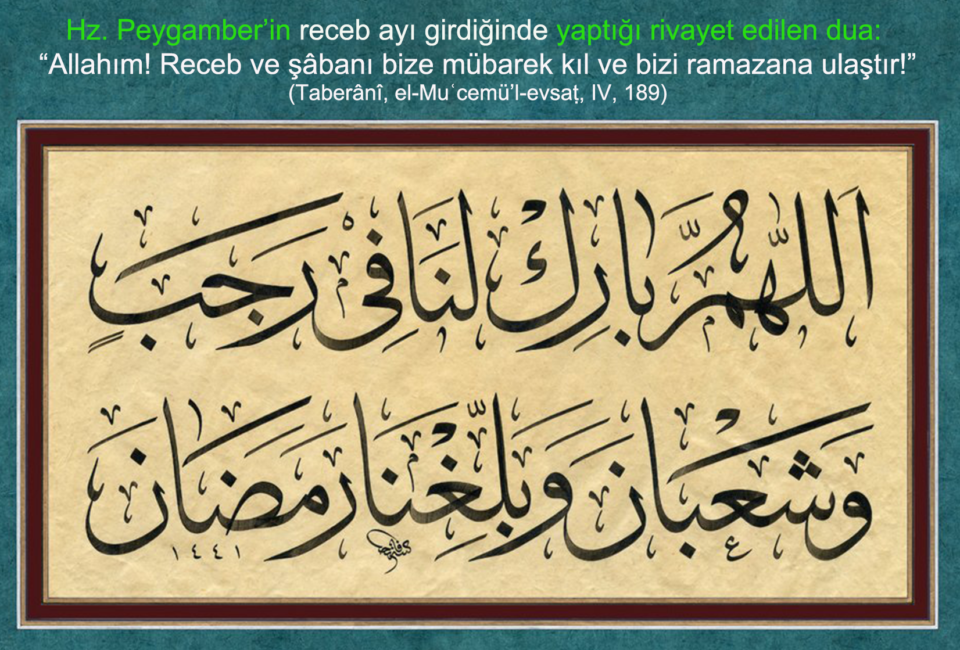 Hz. Peygamber’in receb ayı girdiğinde yaptığı rivayet edilen dua:
“Allahım! Receb ve şâbanı bize mübarek kıl ve bizi ramazana ulaştır!”
(Taberânî, el-Muʿcemü’l-evsaṭ, IV, 189)
اَللّٰهُمَّ بَارِكْ لَنَا فِي رَجَبٍ
وَشَعْبَانَ وَبَلِّغْنَا رَمَضَانَ
١٤٤١